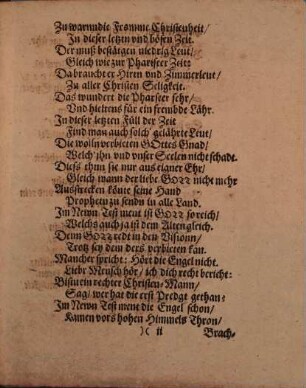 Zu warnudie Fromme Christenheit/
In dieser letzn vnd bösen Zeit.
Der muß bestätgen niedrig Leut/
Gleich wie zur Phariseer Zeit:
Da braucht er Hirtn vnd Zimmerleut/
Zu aller Christen Seligkeit.
Das wundert die Phariseer sehr/
Vnd hieltens für ein frembde Lähr.
In dieser letzten Füll der Zeit
Find man auch solch gelährte Leut/
Die wolln verbieten GOttes Gnad/
Welch' ihn vnd vnser Seelen nicht schadt.
Dieß thun sie nur aus eigner Ehr/
Gleich wann der liebe GOtt nicht mehr
Ausstrecken könte seine Hand
Prophetn zu sendn in alle Land.
Im Newn Test ment ist GOtt so reich/
Welchs auch ja ist dem Alten gleich.
Denn GOtt redt in den Visionn/
Trotz sey dem ders verbieten kan.
Mancher spricht: Hört die Engel nicht.
Liebr Mensch hör/ ich dich recht bericht:
Bistu ein rechter Christen-Mann/
Sag/ wer hat die erst Predgt gethan:
Im Newn Test ment die Engel schon/
Kamen vors hohen Himmels Thron/
)( ii
Brach-